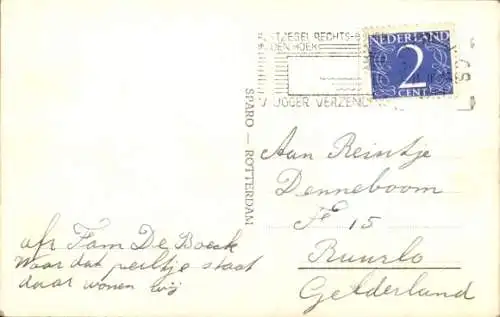 POSTZEGEL RECHTS-BOVEN
IN DEN HOEK
VLUGGER VERZENDING
NEDERLAND
2
CENT
SPARO — ROTTERDAM
Aan Reintje
Denneboom
F 15
Ruurlo
Gelderland
afz Fam De Boeck
Waar dat peiltje staat
daar wonen wij